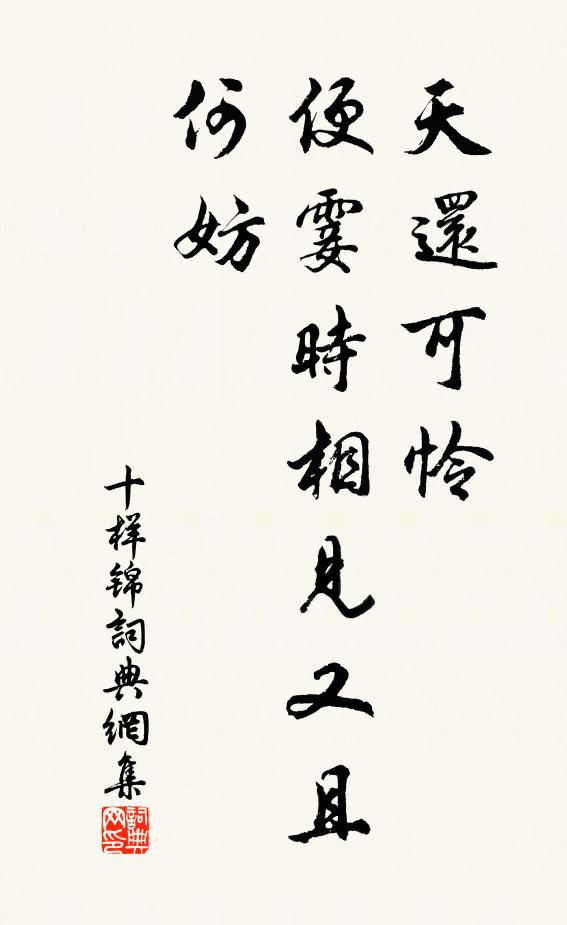 天還可怜
便霎時相見又且
何妨
十样锦詞典網集
詞典网印